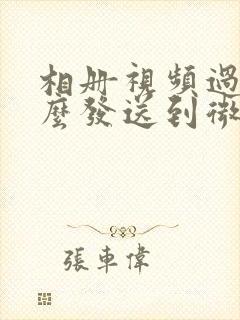 相册視頻過
麼發送到微
張車偉